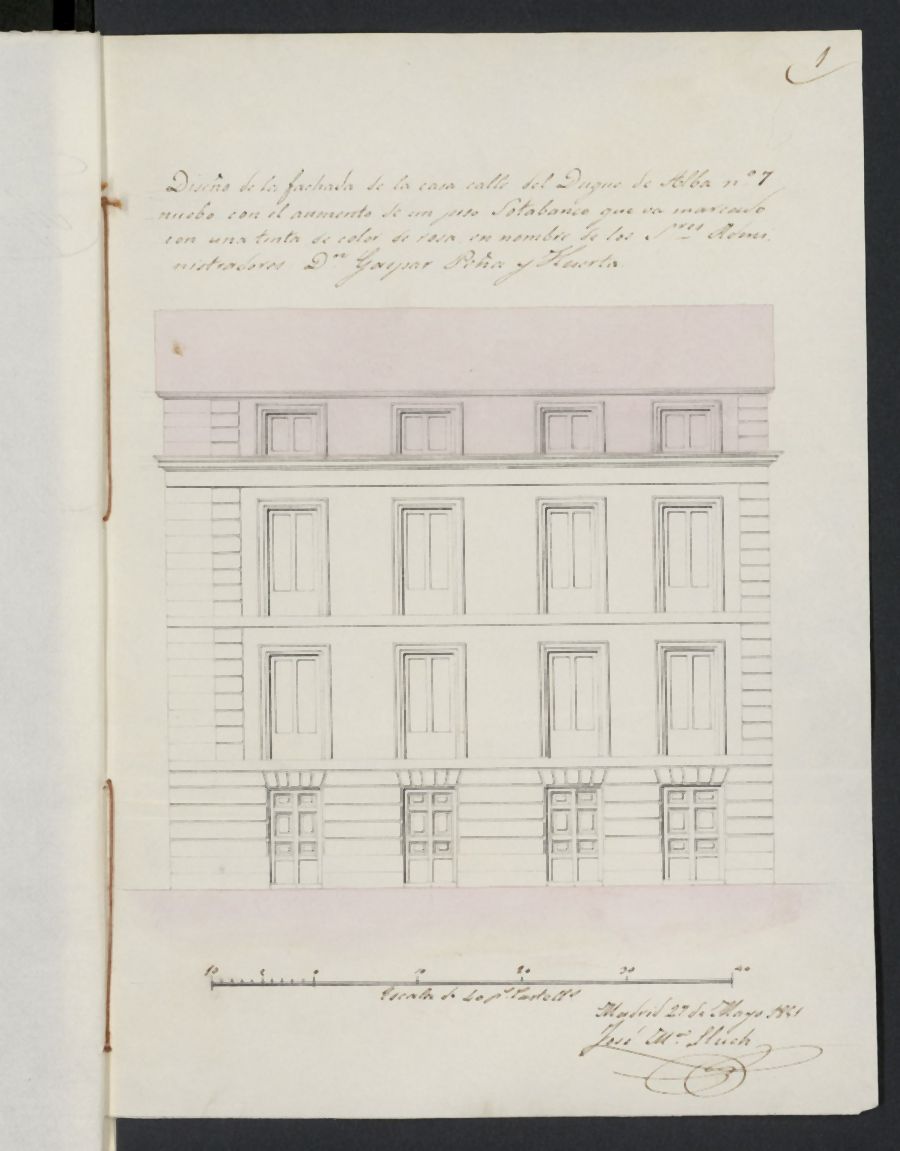 1
Diseño de la fachada de la casa calle del Duque de Alba nº 7
nuebo con el aumento de un piso Sotabanco que va marcado
con una tinta de color de rosa en nombre de los Sres Admi
nistradores Dn Gaspar Peña y Huerta
10 0 10 20 30 40
Escala de 40 ps Castells
Madrid 27 de Mayo
José Ma Lluch